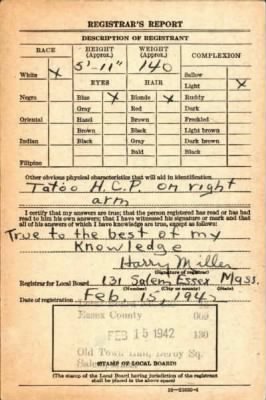 REGISTRAR'S REPORT
DESCRIPTION OF REGISTRANT
RACE HEIGHT (Approx.) WEIGHT (Approx.) COMPLEXION
5'-11" 140 Sallow
White X EYES HAIR Light X
Negro Blue X Blonde X Ruddy
Gray Red Dark
Oriental Hazel Brown Freckled
Brown Black Light brown
Indian Black Gray Dark brown
Bald Black
Filipino
Other obvious physical characteristics that will aid in identification
Tatoo H.C.P. on right
arm
I certify that my answers are true; that the person registered has read or has had
read to him his own answers; that I have witnessed his signature or mark and that
all of his answers of which I have knowledge are true, except as follows:
True to the best of my
Knowledge
Harry Miller
(Signature of registrar)
Registrar for Local Board 131 Salem Essex Mass.
(Number) (City or county) (State)
Date of registration Feb. 15, 1942
Essex County 009
FEB 15 1942 130
Old Town Hall, Derby Sq.
Salem
(STAMP OF LOCAL BOARD)
(The stamp of the Local Board having jurisdiction of the registrant
shall be placed in the above space)